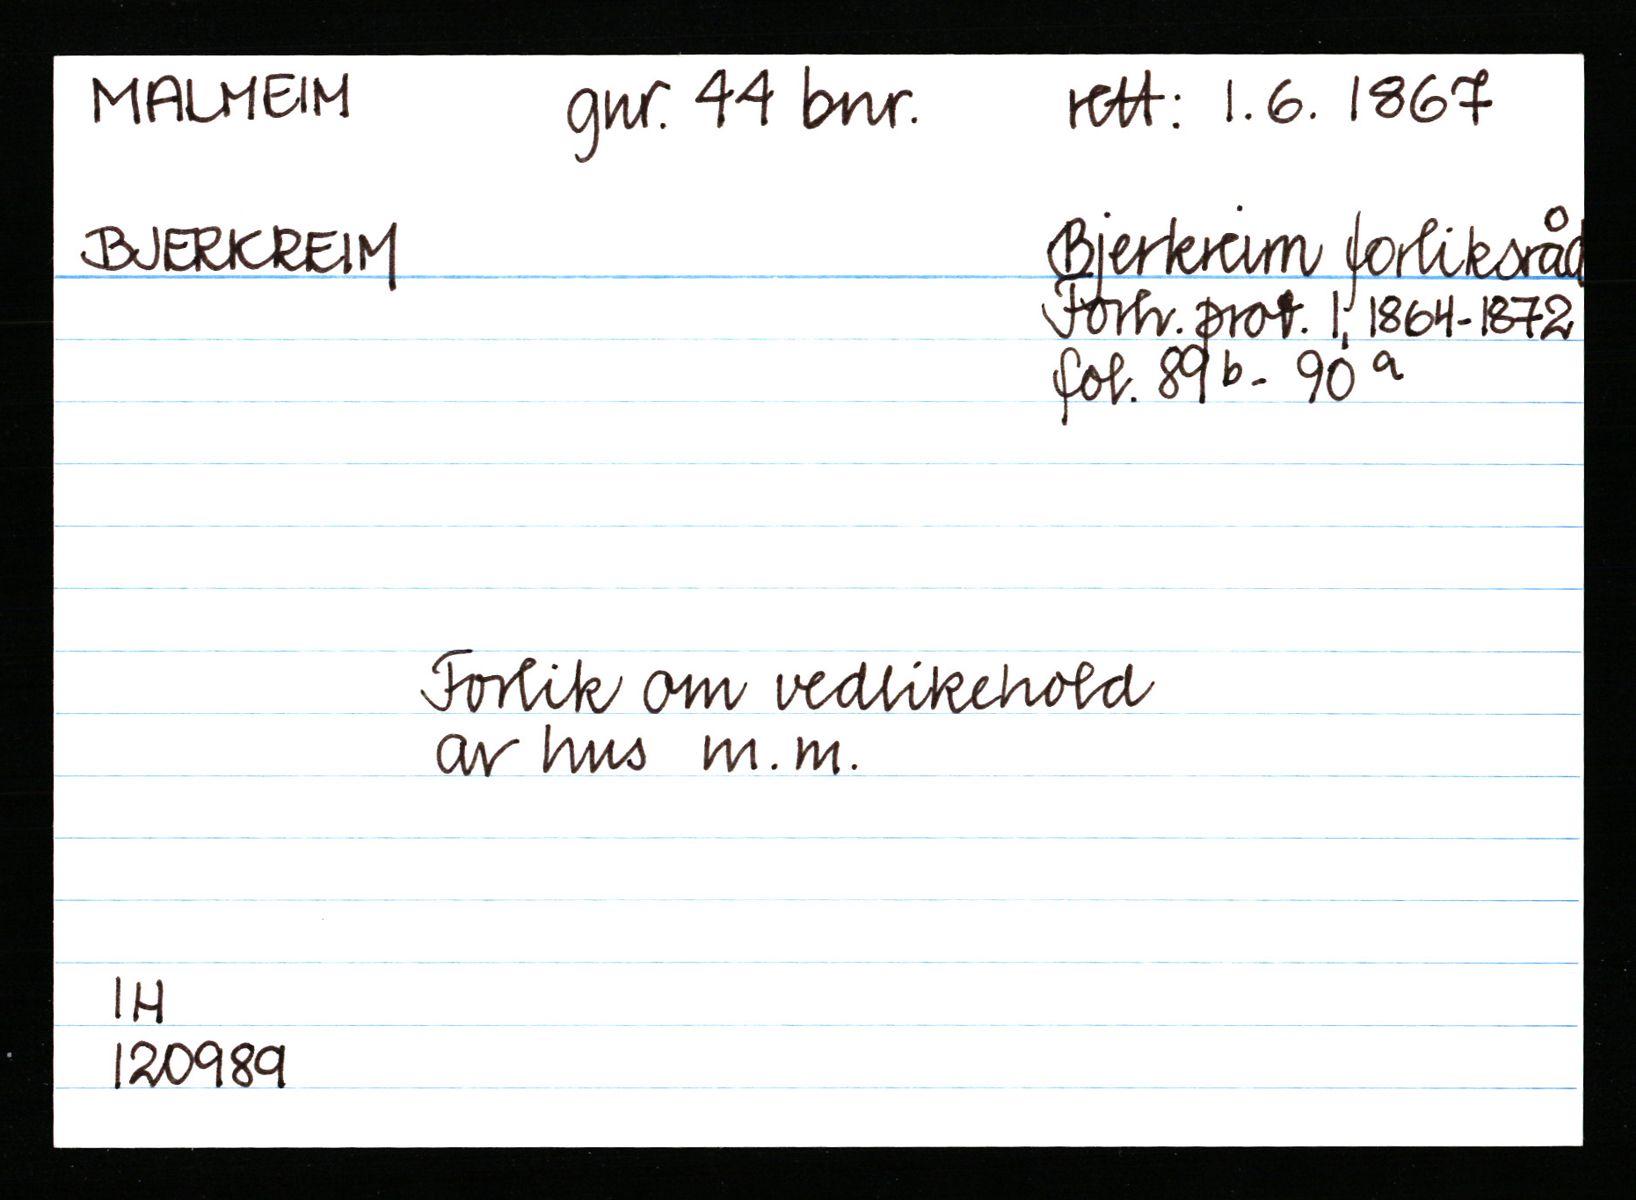 MALMEIM gnr. 44 bnr. rett: 1.6. 1867
BJERKREIM Bjerkreim forliksråd
Forh. prot. 1, 1864-1872
fol. 89 b - 90 a
Forlik om vedlikehold
av hus m.m.
IH
120989